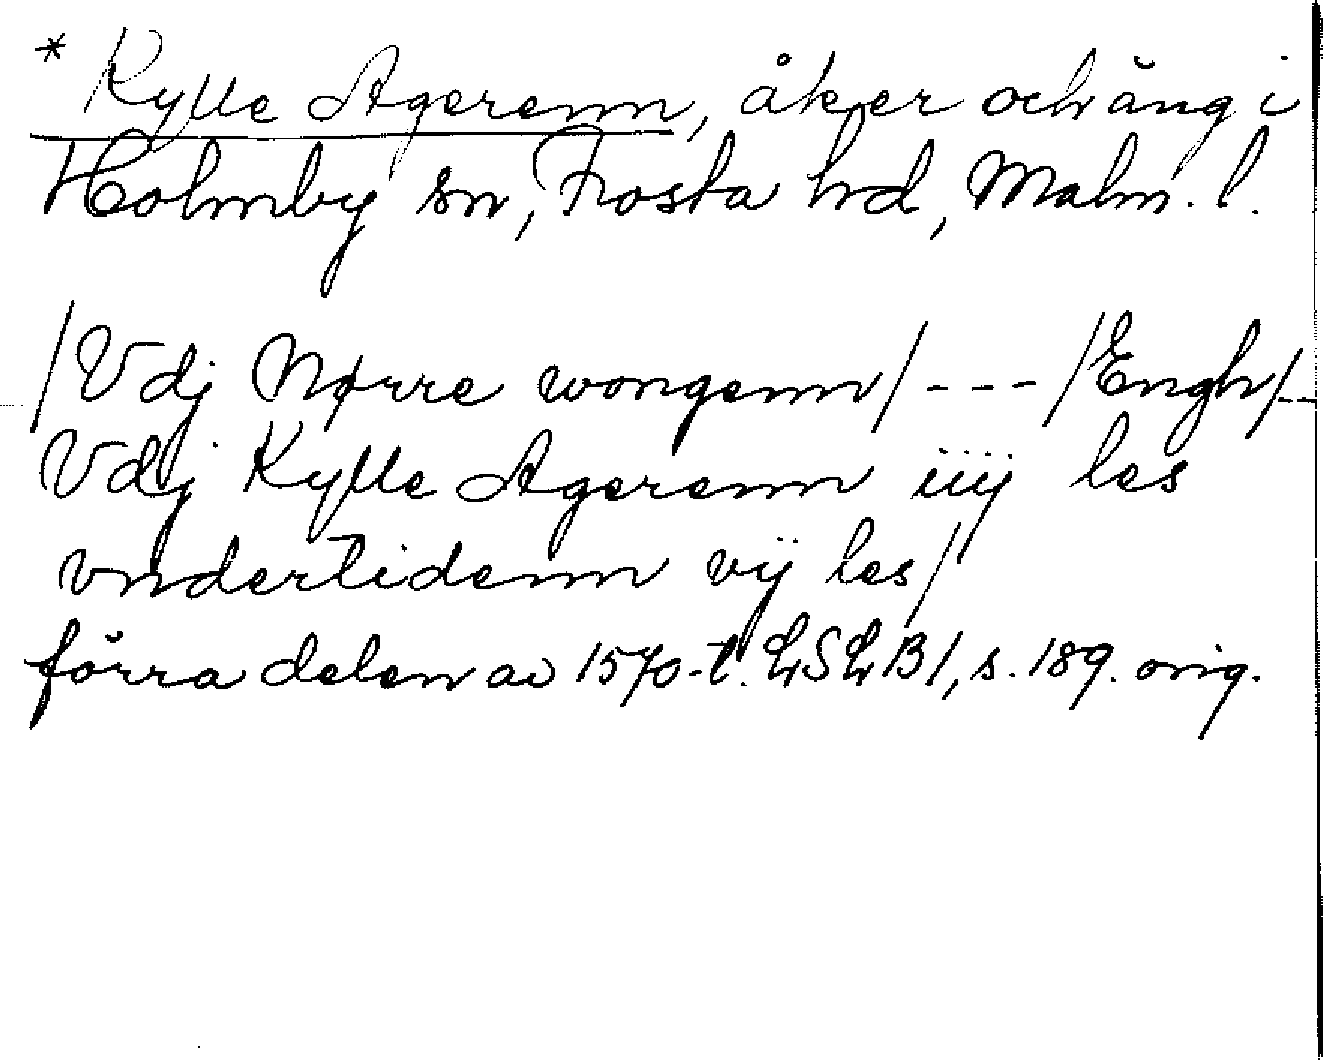 * Kylle Agerenn, åker och äng i
Holmby sn, Frosta hd, Malm. l.
/Vdj Nørre wongenn/ - - - /Engh/ - -
Vdj Kylle Agerenn iiij les
vndertidenn vij les/
förra delen av 1570-t. LSLB 1, s. 189. orig.